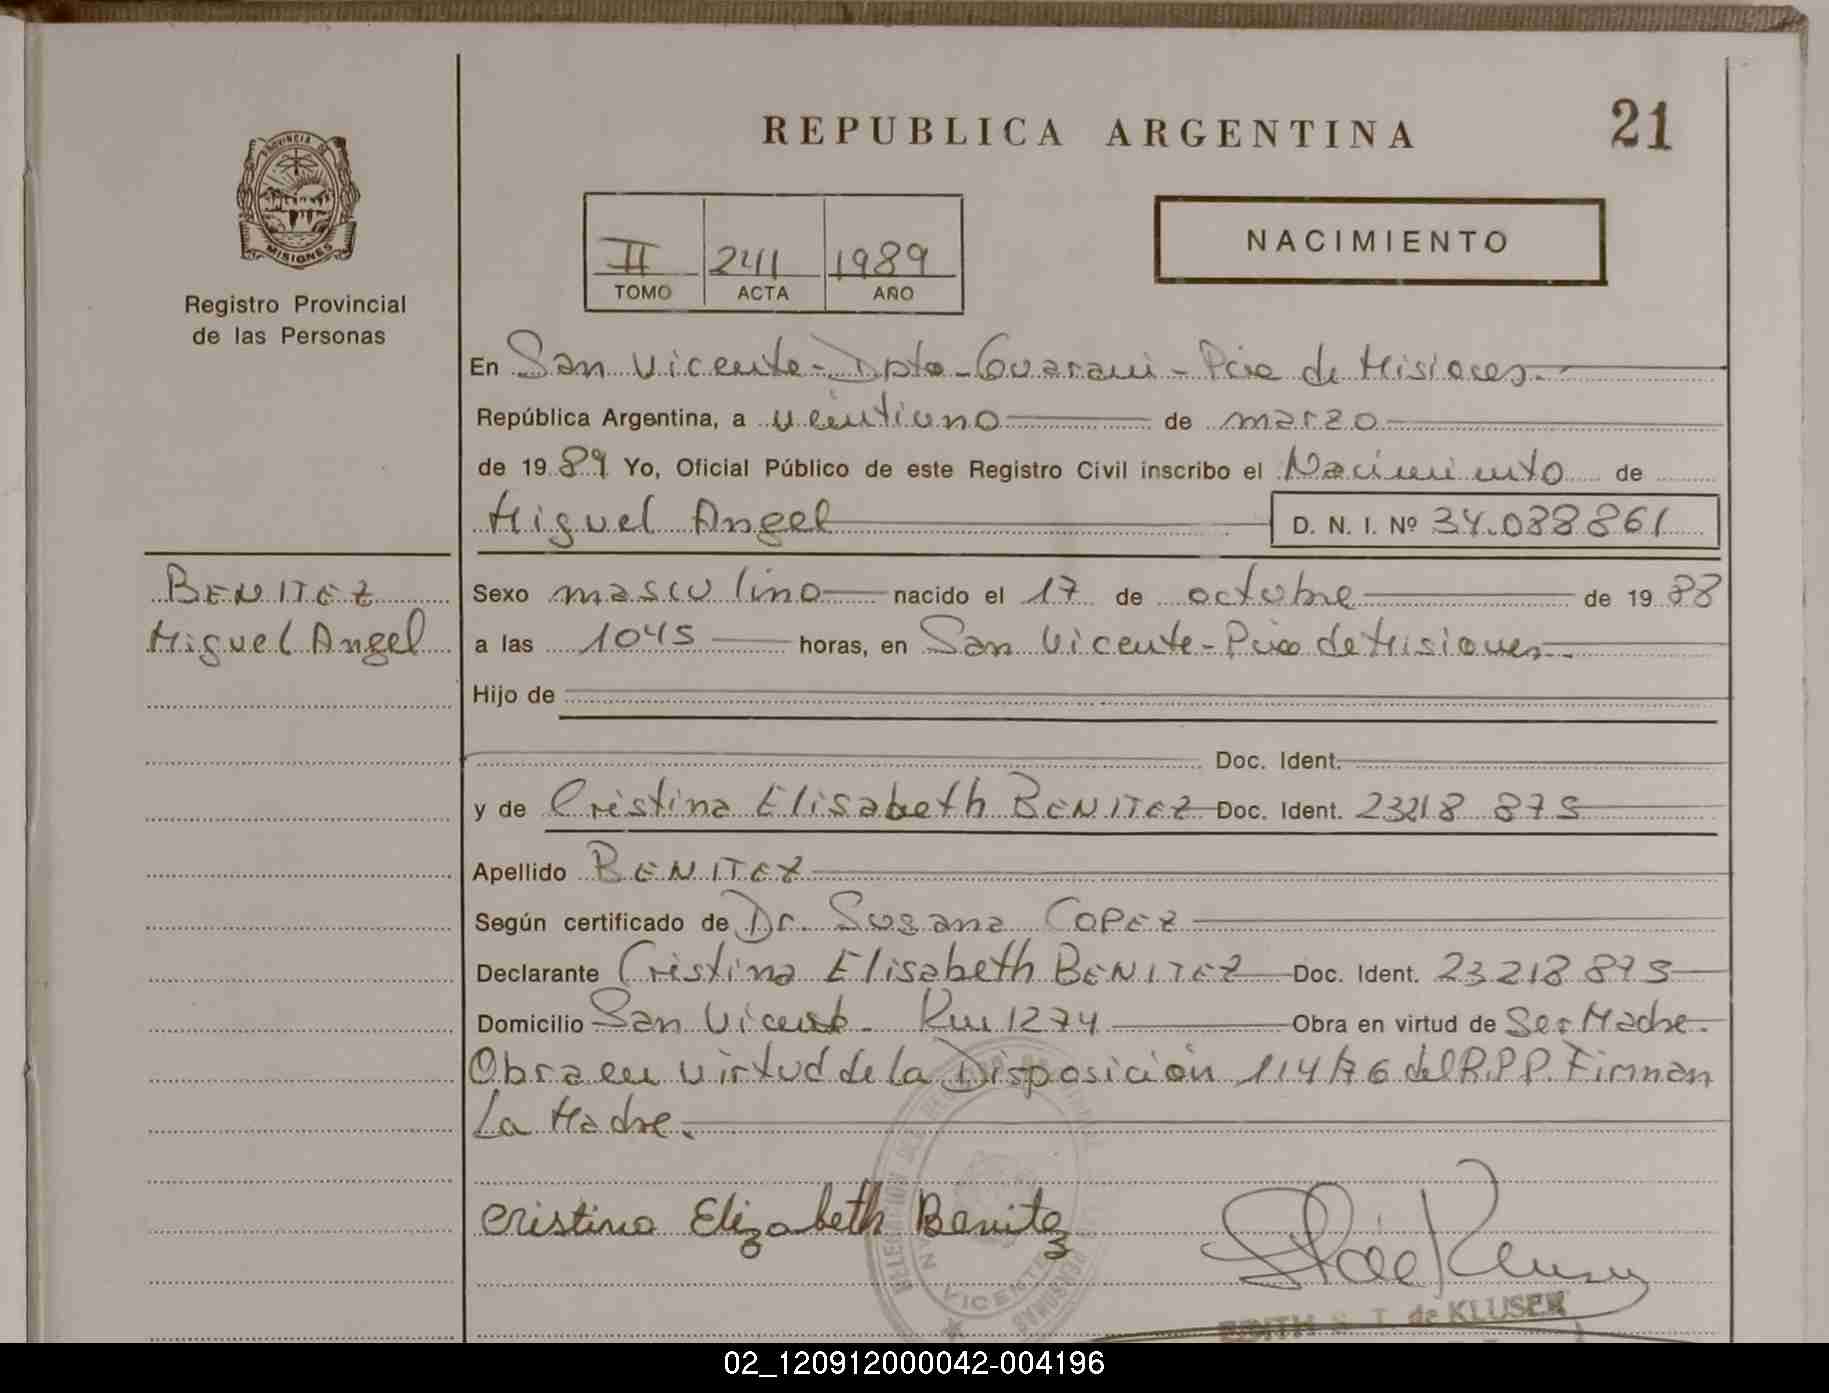 REPUBLICA ARGENTINA
21
PROVINCIA DE
MISIONES
Registro Provincial
de las Personas
II 241 1989
TOMO ACTA AÑO
NACIMIENTO
En San Vicente - Dpto - Guarani - Pcia de Misiones.
República Argentina, a veintiuno de marzo
de 1989 Yo, Oficial Público de este Registro Civil inscribo el Nacimiento de
Miguel Angel D. N. I. Nº 34.038861
BENITEZ
Miguel Angel
Sexo masculino nacido el 17 de octubre de 1988
a las 1045 horas, en San Vicente - Pcia de Misiones.
Hijo de
Doc. Ident.
y de Cristina Elisabeth BENITEZ Doc. Ident. 23218 875
Apellido BENITEZ
Según certificado de Dr. Susana COPEZ
Declarante Cristina Elisabeth BENITEZ Doc. Ident. 23 218 875
Domicilio San Vicente - Km 1274 Obra en virtud de Ser Madre.
Obra en virtud de la Disposición 114/76 del R.P.P. Firman
La Madre.
Cristina Elizabeth Benitez
VICENTE
EDITH S. T. de KLUSER
02_120912000042-004196